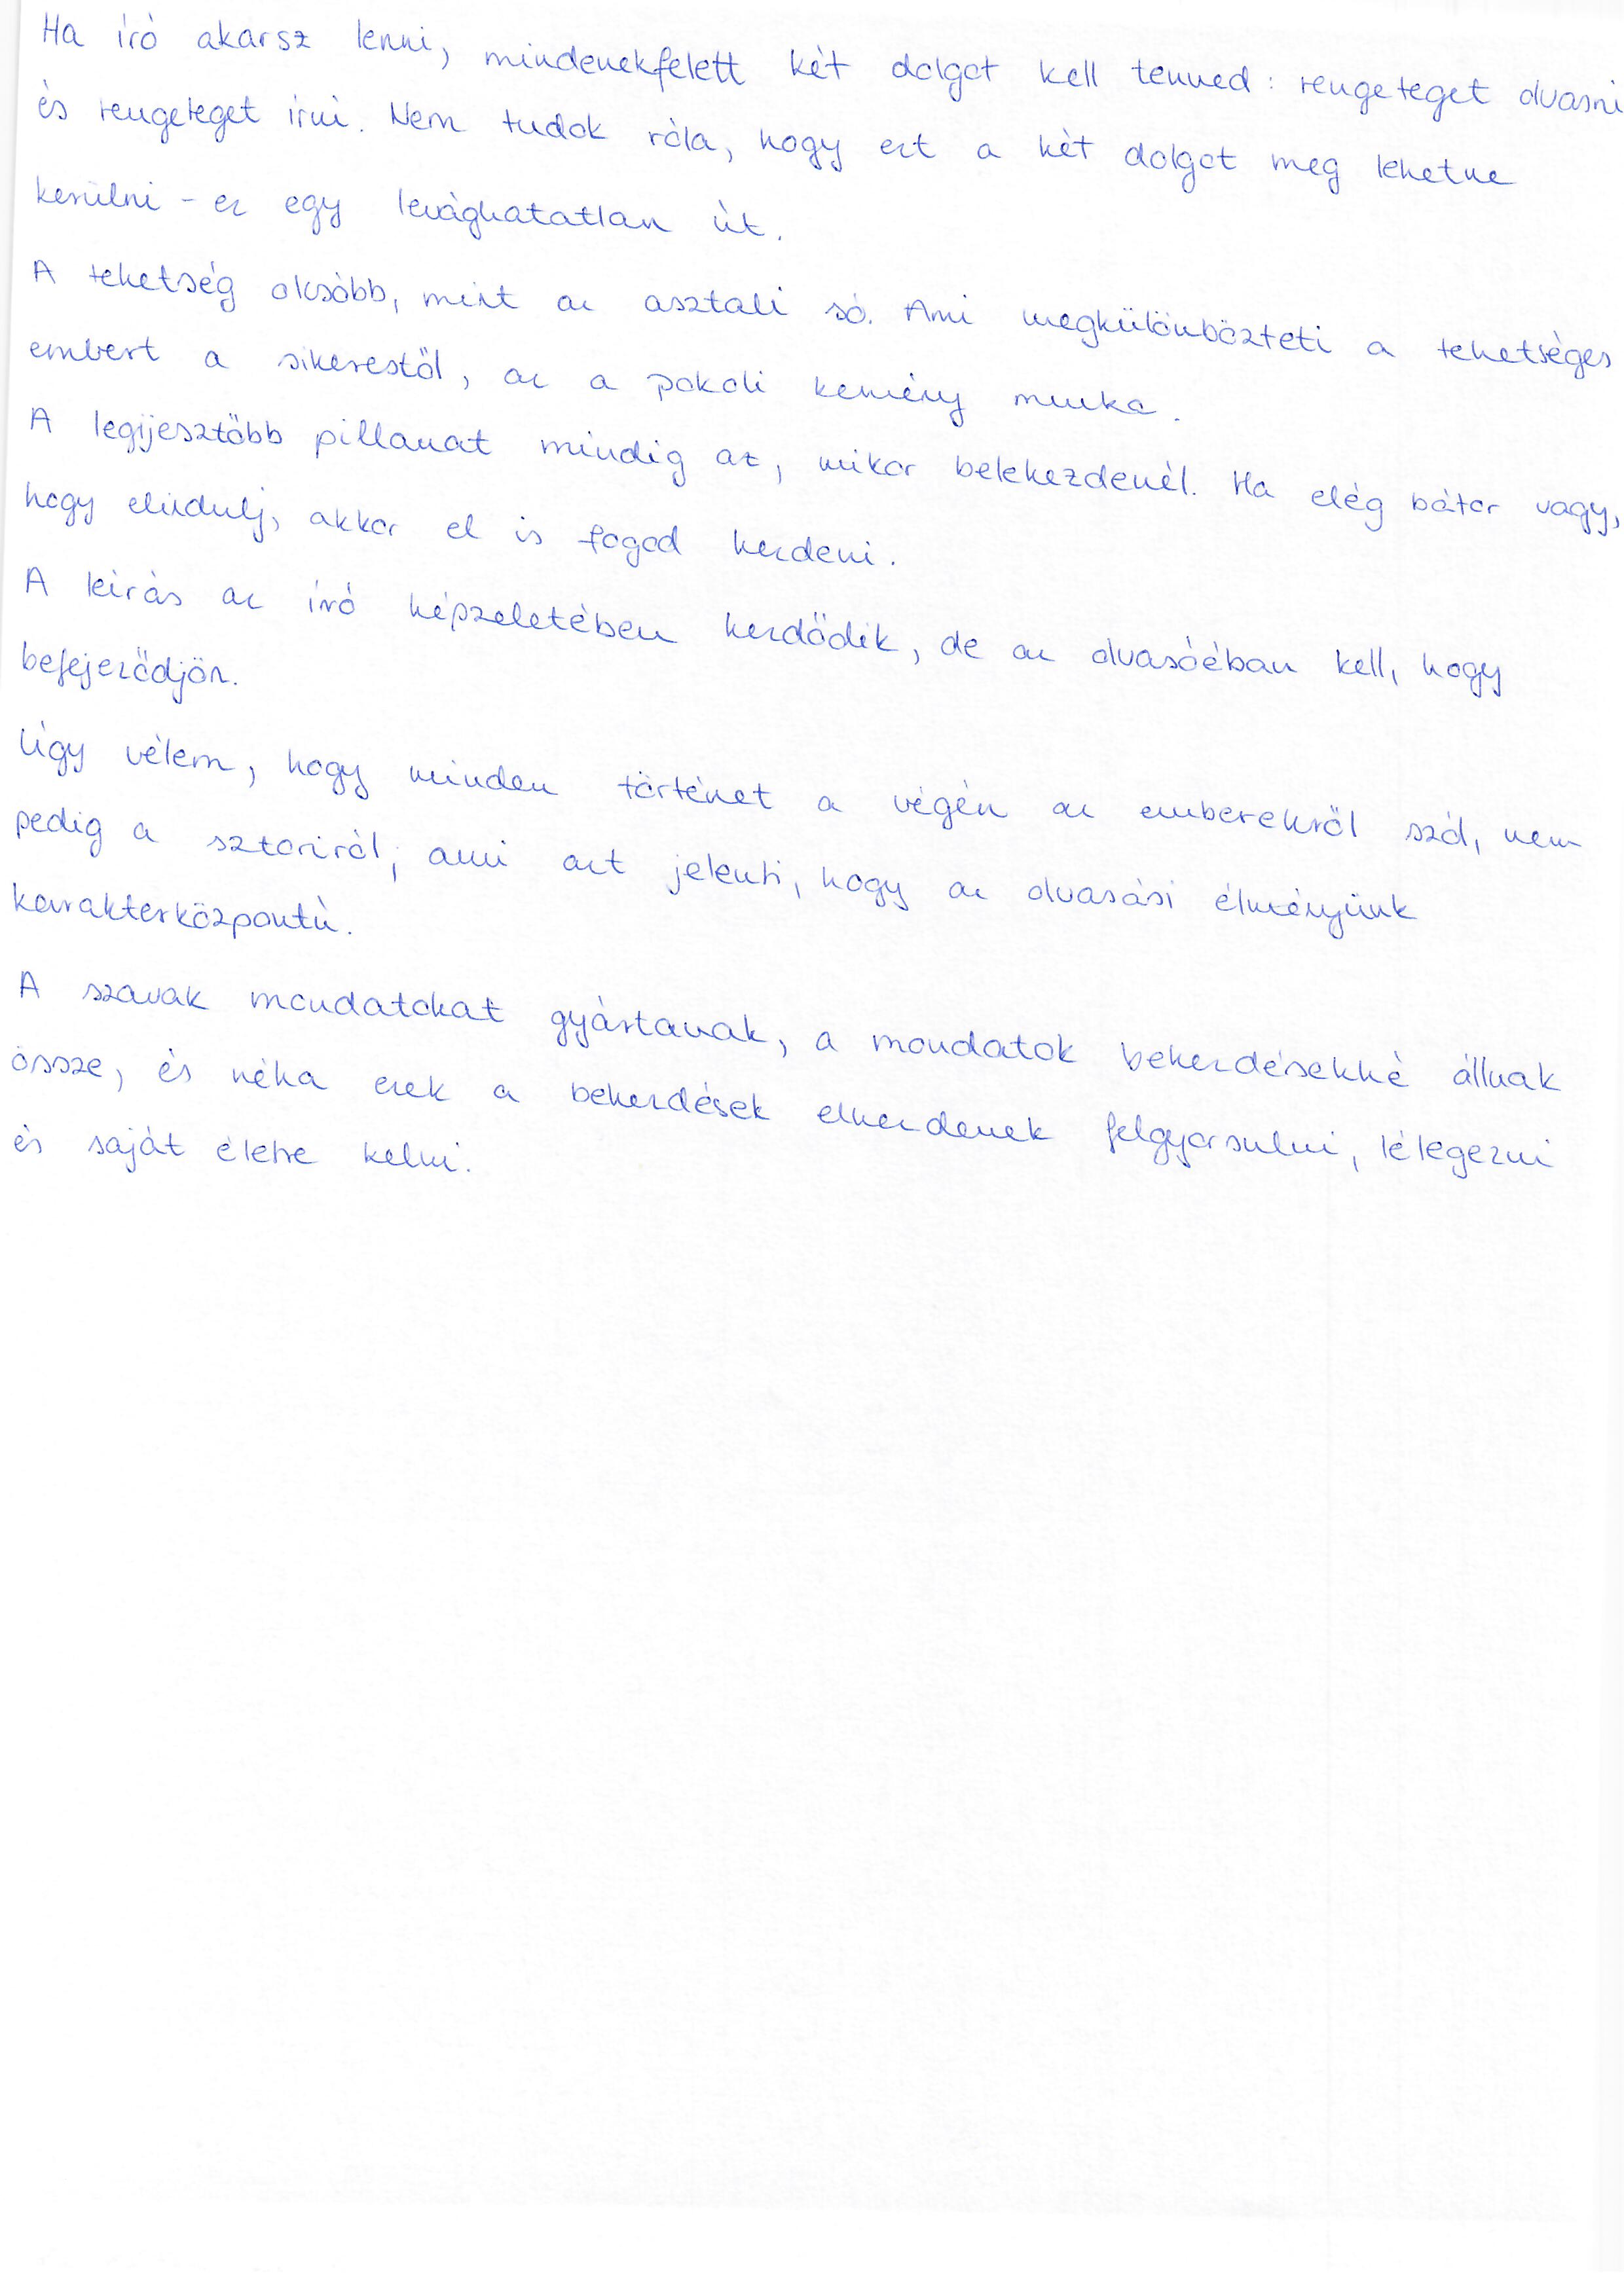 Ha író akarsz lenni, mindenekfelett két dolgot kell tenned: rengeteget olvasni
és rengeteget írni. Nem tudok róla, hogy ezt a két dolgot meg lehetne
kerülni - ez egy levághatatlan út.
A tehetség olcsóbb, mint az asztali só. Ami megkülönbözteti a tehetséges
embert a sikerestől, az a pokoli kemény munka.
A legijesztőbb pillanat mindig az, mikor belekezdenél. Ha elég bátor vagy,
hogy elindulj, akkor el is fogod kezdeni.
A leírás az író képzeletében kezdődik, de az olvasóéban kell, hogy
befejeződjön.
Úgy vélem, hogy minden történet a végén az emberekről szól, nem
pedig a sztoriról, ami azt jelenti, hogy az olvasási élményünk
karakterközpontú.
A szavak mondatokat gyártanak, a mondatok bekezdésekké állnak
össze, és néha ezek a bekezdések elkezdenek felgyorsulni, lélegezni
és saját életre kelni.